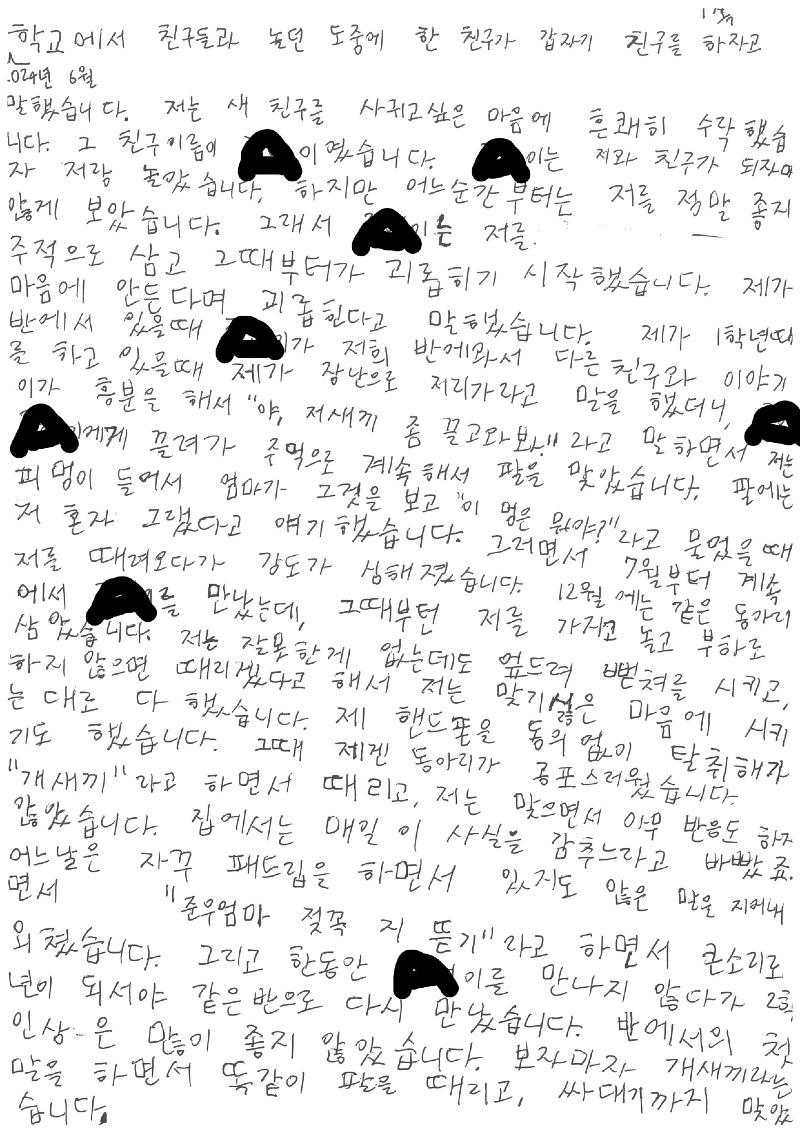 학교에서 친구들과 놀던 도중에 한 친구가 갑자기 친구를 하자고
2024년 6월
말했습니다. 저는 새 친구를 사귀고싶은 마음에 흔쾌히 수락했습
니다. 그 친구이름이 이였습니다. 이는 저와 친구가 되자마
자 저랑 놀았습니다. 하지만 어느순간부터는 저를 정말 좋지
않게 보았습니다. 그래서 이는 저를
주적으로 삼고 그때부터가 괴롭히기 시작했습니다. 제가
마음에 안든다며 괴롭힌다고 말했습니다. 제가 1학년때
반에서 있을때 이가 저희 반에와서 다른친구와 이야기
를 하고 있을때 제가 장난으로 저리가라고 말을 했더니,
이가 흥분을 해서 "야, 저새끼 좀 끌고와봐." 라고 말하면서 저는
이에게 끌려가 주먹으로 계속해서 팔을 맞았습니다. 팔에는
피멍이 들어서 엄마가 그것을 보고 "이 멍은 뭐야?"라고 물었을때
저 혼자 그랬다고 얘기했습니다. 그러면서 7월부터 계속
저를 때려오다가 강도가 심해졌습니다. 12월에는 같은 동아리
에서 이를 만났는데, 그때부턴 저를 가지고 놀고 부하로
삼았습니다. 저는 잘못한게 없는데도 엎드려 뻗쳐를 시키고,
하지 않으면 때리겠다고 해서 저는 맞기싫은 마음에 시키
는 대로 다 했습니다. 제 핸드폰을 동의없이 탈취해가
기도 했습니다. 그때 제겐 동아리가 공포스러웠습니다.
"개새끼"라고 하면서 때리고, 저는 맞으면서 아무 반응도 하지
않았습니다. 집에서는 매일 이 사실을 감추느라고 바빴죠.
어느날은 자꾸 패드립을 하면서 있지도 않은 말을 지어내
면서 "준우엄마 젖꼭지 뜯기"라고 하면서 큰소리로
외쳤습니다. 그리고 한동안 이를 만나지 않다가 2학
년이 되서야 같은반으로 다시 만났습니다. 반에서의 첫
인상은 많이 좋지 않았습니다. 보자마자 개새끼라는
말을 하면서 똑같이 팔을 때리고, 싸대기까지 맞았
습니다.